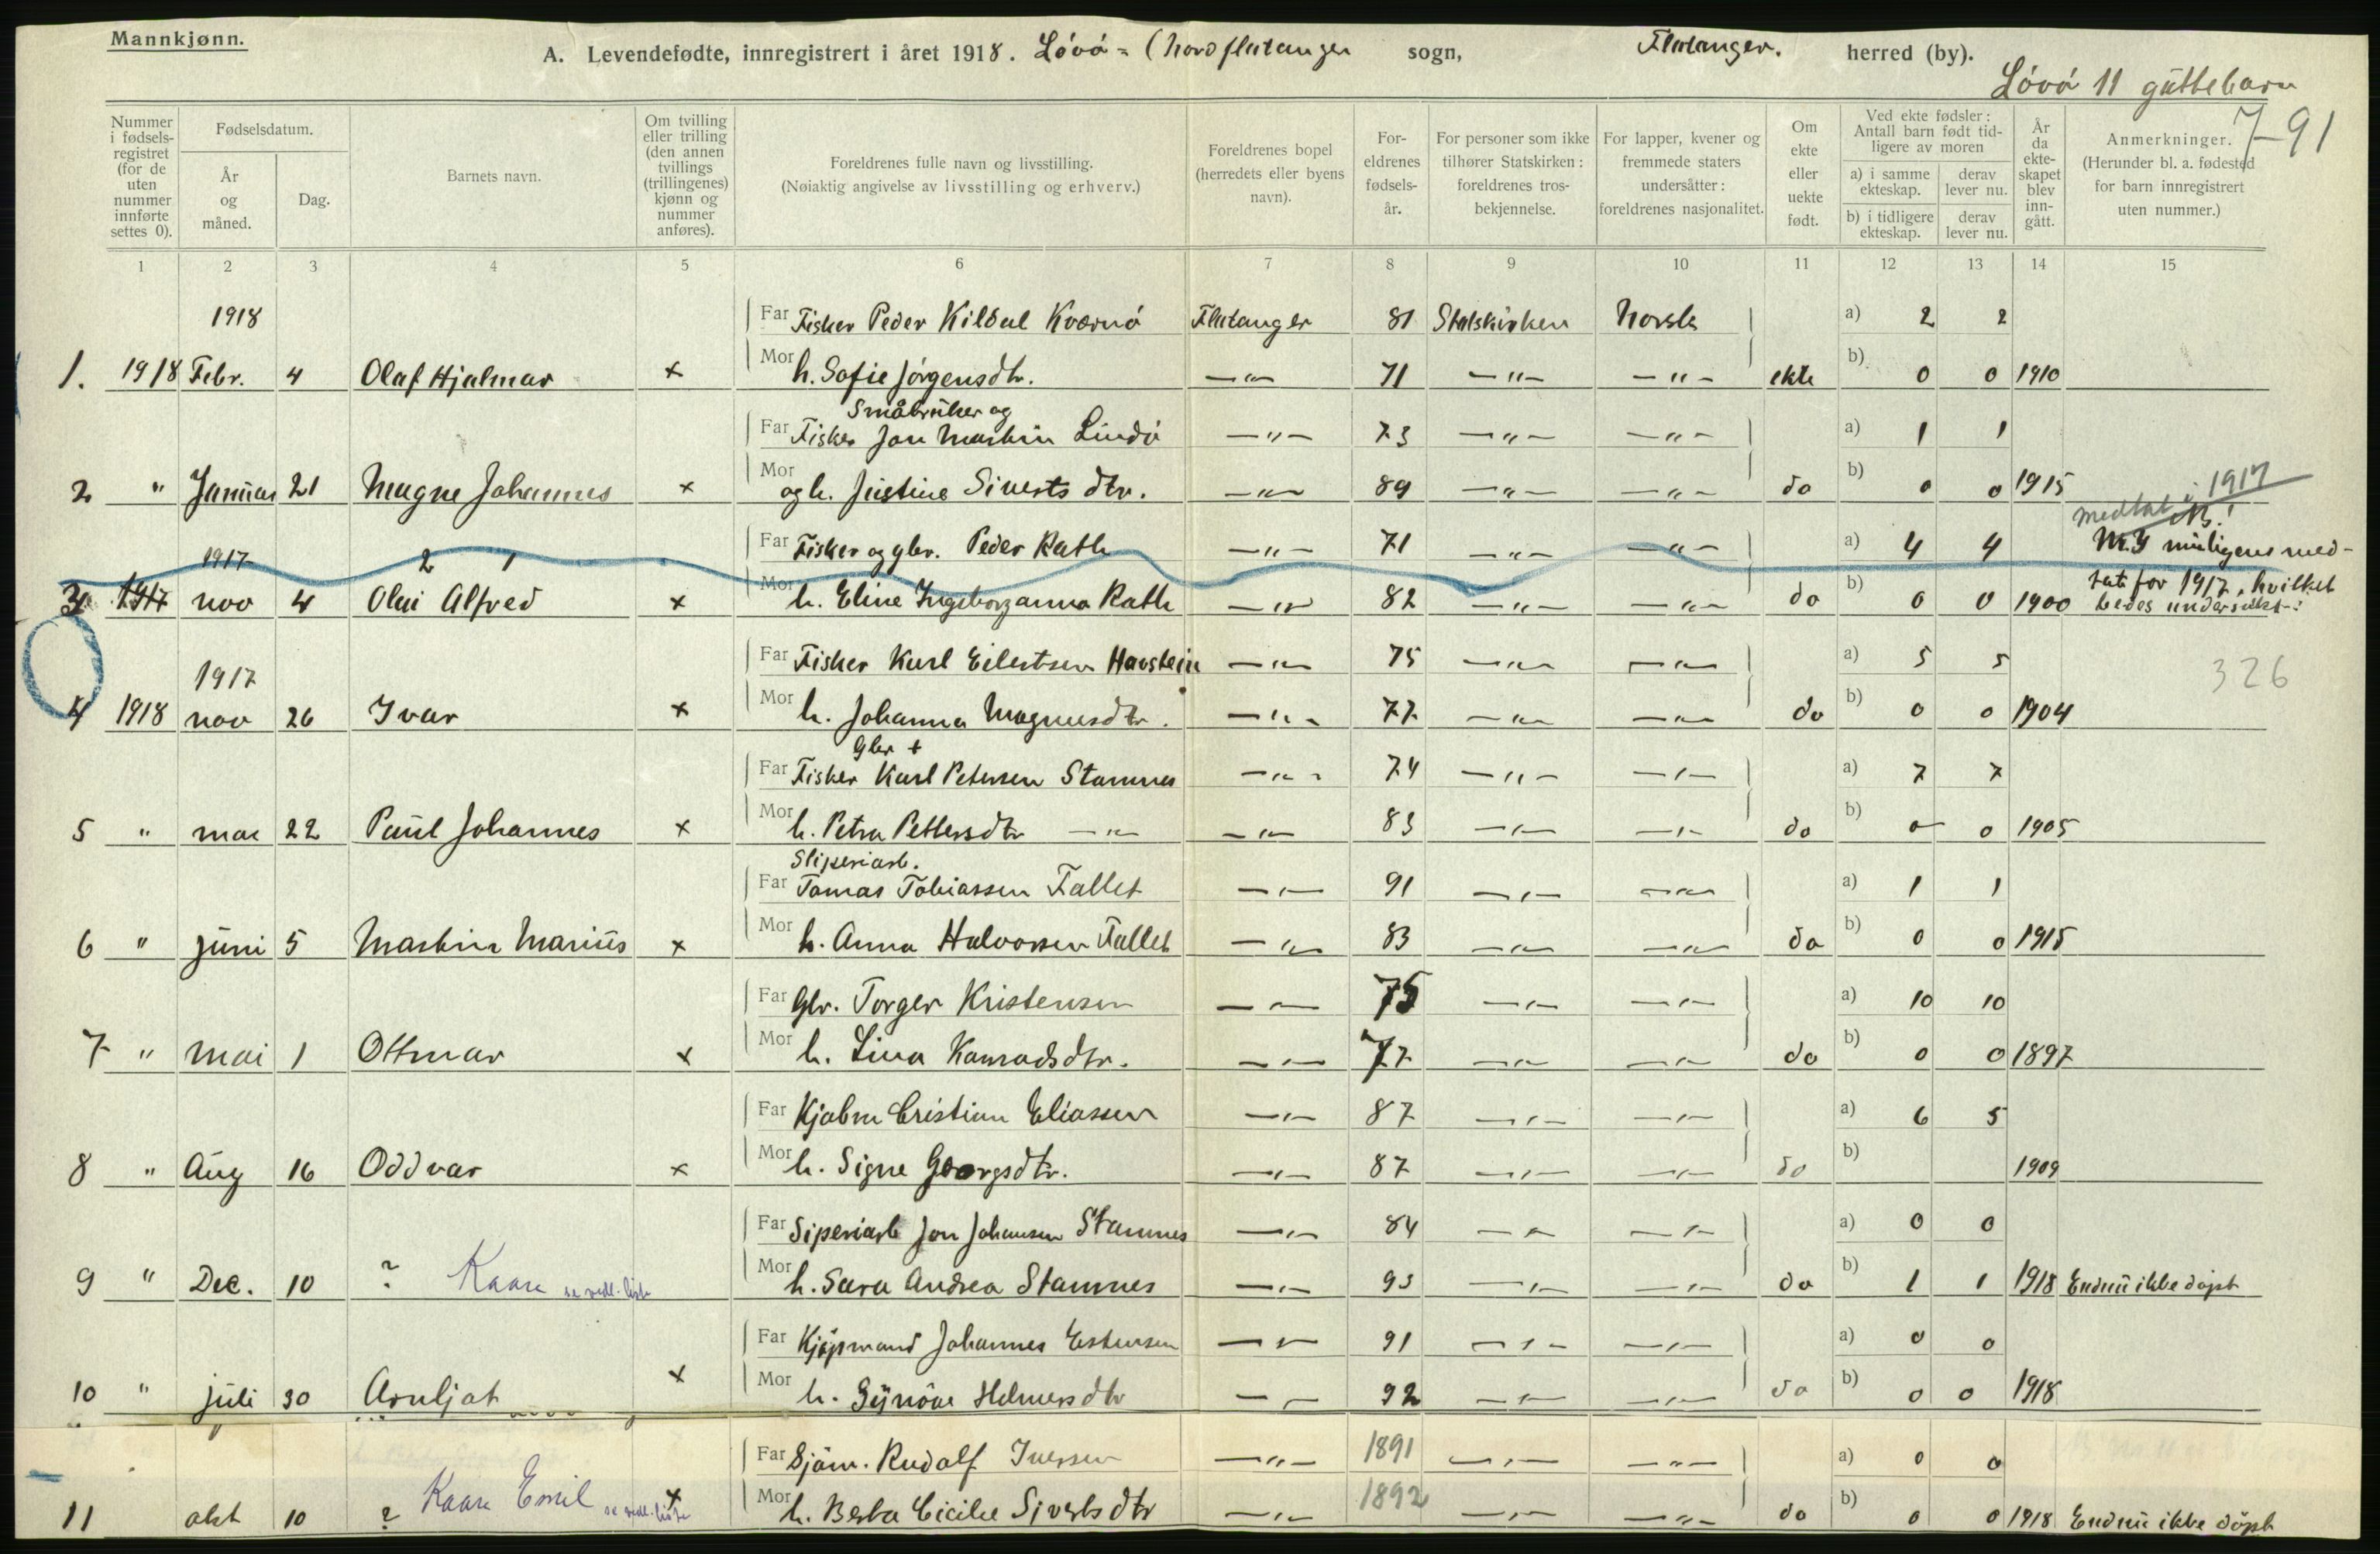 Mannkjønn.
A. Levendefødte, innregistrert i året 1918. Lövö = (Nordflatanger sogn, Flatanger. herred (by).
Lövö 11 guttebarn
7-91
Nummer i fødselsregistret (for de uten nummer innførte settes 0).
Fødselsdatum.
År og måned.
Dag.
Barnets navn.
Om tvilling eller trilling (den annen tvillings (trillingenes) kjønn og nummer anføres).
Foreldrenes fulle navn og livsstilling.
(Nøiaktig angivelse av livsstilling og erhverv.)
Foreldrenes bopel (herredets eller byens navn).
Foreldrenes fødselsår.
For personer som ikke tilhører Statskirken: foreldrenes trosbekjennelse.
For lapper, kvener og fremmede staters undersåtter: foreldrenes nasjonalitet.
Om ekte eller uekte født.
Ved ekte fødsler: Antall barn født tidligere av moren
a) i samme ekteskap.
derav lever nu.
b) i tidligere ekteskap.
derav lever nu.
År da ekteskapet blev inngått.
Anmerkninger.
(Herunder bl. a. fødested for barn innregistrert uten nummer.)
1 2 3 4 5 6 7 8 9 10 11 12 13 14 15
1918 Far Fisker Peder Kildal Kvernö Flatanger 81 Statskirken Norsk a) 2 2
1. 1918 Febr. 4 Olaf Hjalmar x Mor h. Sofie Jörgensdtr. —"— 71 —"— —"— ekte b) 0 0 1910
Småbruker og
Far Fisker Jon Martin Lindö —"— 73 —"— —"— a) 1 1
2 " Januar 21 Magne Johannes x Mor og h. Justine Siverts dtr. —"— 89 —"— —"— do b) 0 0 1915
medtat i 1917
1917 2 1 Far Fisker og gbr. Peder Rath —"— 71 —"— —"— a) 4 4 No. 3 muligens med-
3 1917 nov 4 Olai Alfred x Mor h. Eline Ingeborganna Rath —"— 82 —"— —"— do b) 0 0 1900 tat for 1917, hvilket
bedes undersökt.
1917 Far Fisker Karl Eilertsen Havstein —"— 75 —"— —"— a) 5 5 326
4 1918 nov 26 Ivar x Mor h. Johanna Magnusdtr. —"— 77 —"— —"— do b) 0 0 1904
Gbr +
Far Fisker Karl Petersen Stamnes —"— 74 —"— —"— a) 7 7
5 " mai 22 Paul Johannes x Mor h. Petra Pettersdtr —"— —"— 83 —"— —"— do b) 0 0 1905
Sliperiarb.
Far Tomas Tobiassen Fallet —"— 91 —"— —"— a) 1 1
6 " juni 5 Martin Marius x Mor h. Anna Halvorsen Fallet —"— 83 —"— —"— do b) 0 0 1915
Far Gbr. Torger Kristensen —"— 75 —"— —"— a) 10 10
7 " mai 1 Ottmar x Mor h. Lina Konradsdtr. —"— 77 —"— —"— do b) 0 0 1897
Far Kjabm Cristian Eliassen —"— 87 —"— —"— a) 6 5
8 " Aug 16 Oddvar x Mor h. Signe Georgsdtr. —"— 87 —"— —"— do b) 1909
Far Sliperiarb Jon Johansen Stamnes —"— 84 —"— —"— a) 0 0
9 " Dec. 10 ? Kaare se vedl. liste Mor h. Sara Andrea Stamnes —"— 93 —"— —"— do b) 1 1 1918 Endnu ikke döpt
Far Kjöpmand Johannes Estensen —"— 91 —"— —"— a) 0 0
10 " juli 30 Arnljot x Mor h. Synöve Helmersdtr —"— 92 —"— —"— do b) 0 0 1918
Far Sjöm. Rudolf Iversen —"— 1891 —"— —"— a) 0 0
11 okt 10 ? Kaare Emil se vedl. liste x Mor h. Berta Cicilie Sivertsdtr —"— 1892 —"— —"— do b) 0 0 1918 Endnu ikke döpt